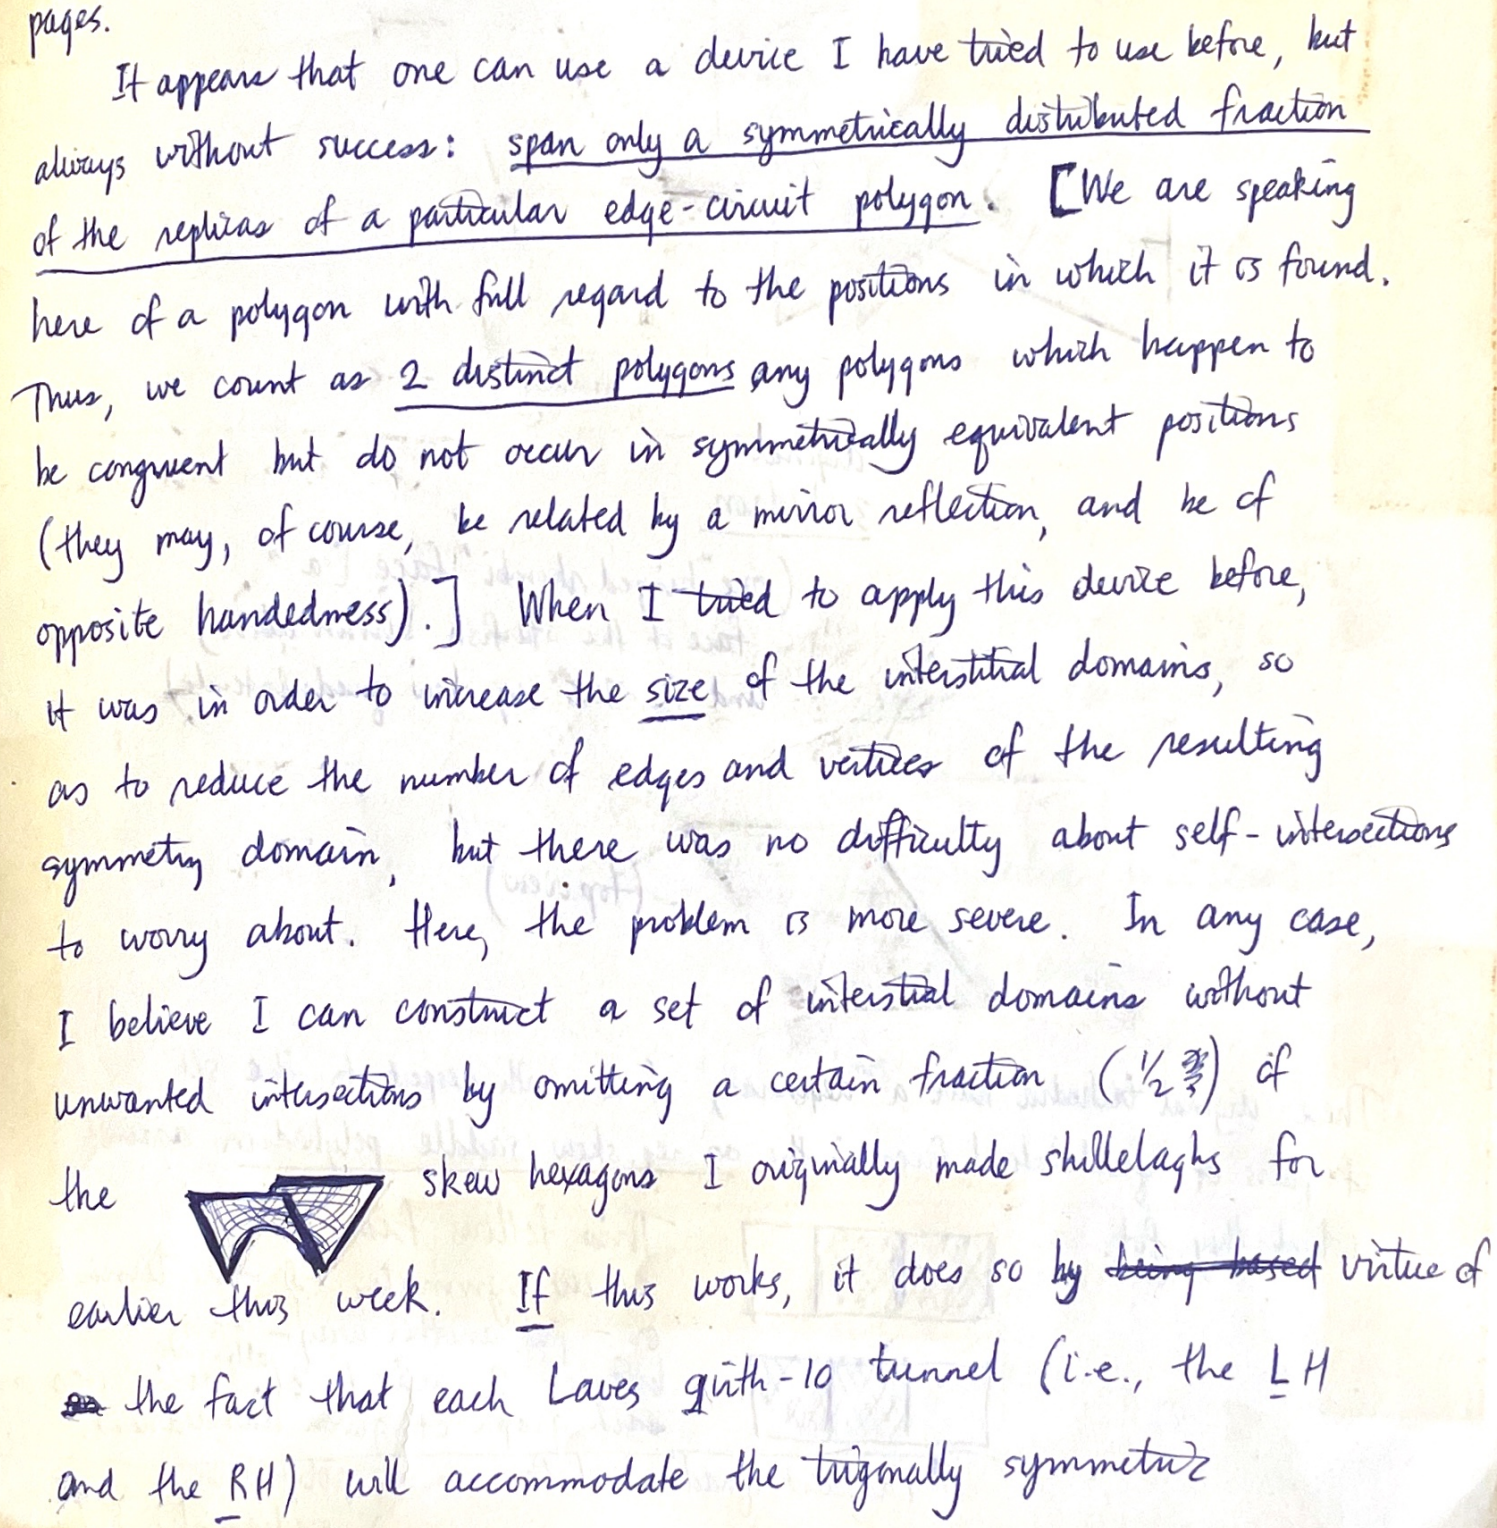 pages.
It appears that one can use a device I have tried to use before, but
always without success: span only a symmetrically distributed fraction
of the replicas of a particular edge-circuit polygon. [We are speaking
here of a polygon with full regard to the positions in which it is found.
Thus, we count as 2 distinct polygons any polygons which happen to
be congruent but do not occur in symmetrically equivalent positions
(they may, of course, be related by a mirror reflection, and be of
opposite handedness).] When I tried to apply this device before,
it was in order to increase the size of the interstitial domains, so
as to reduce the number of edges and vertices of the resulting
symmetry domain, but there was no difficulty about self-intersections
to worry about. Here, the problem is more severe. In any case,
I believe I can construct a set of interstial domains without
unwanted intersections by omitting a certain fraction (1/2 ) of
the skew hexagons I originally made shillelaghs for
earlier this week. If this works, it does so by being based virtue of
the fact that each Laves girth-10 tunnel (i.e., the LH
and the RH) will accommodate the trigonally symmetric